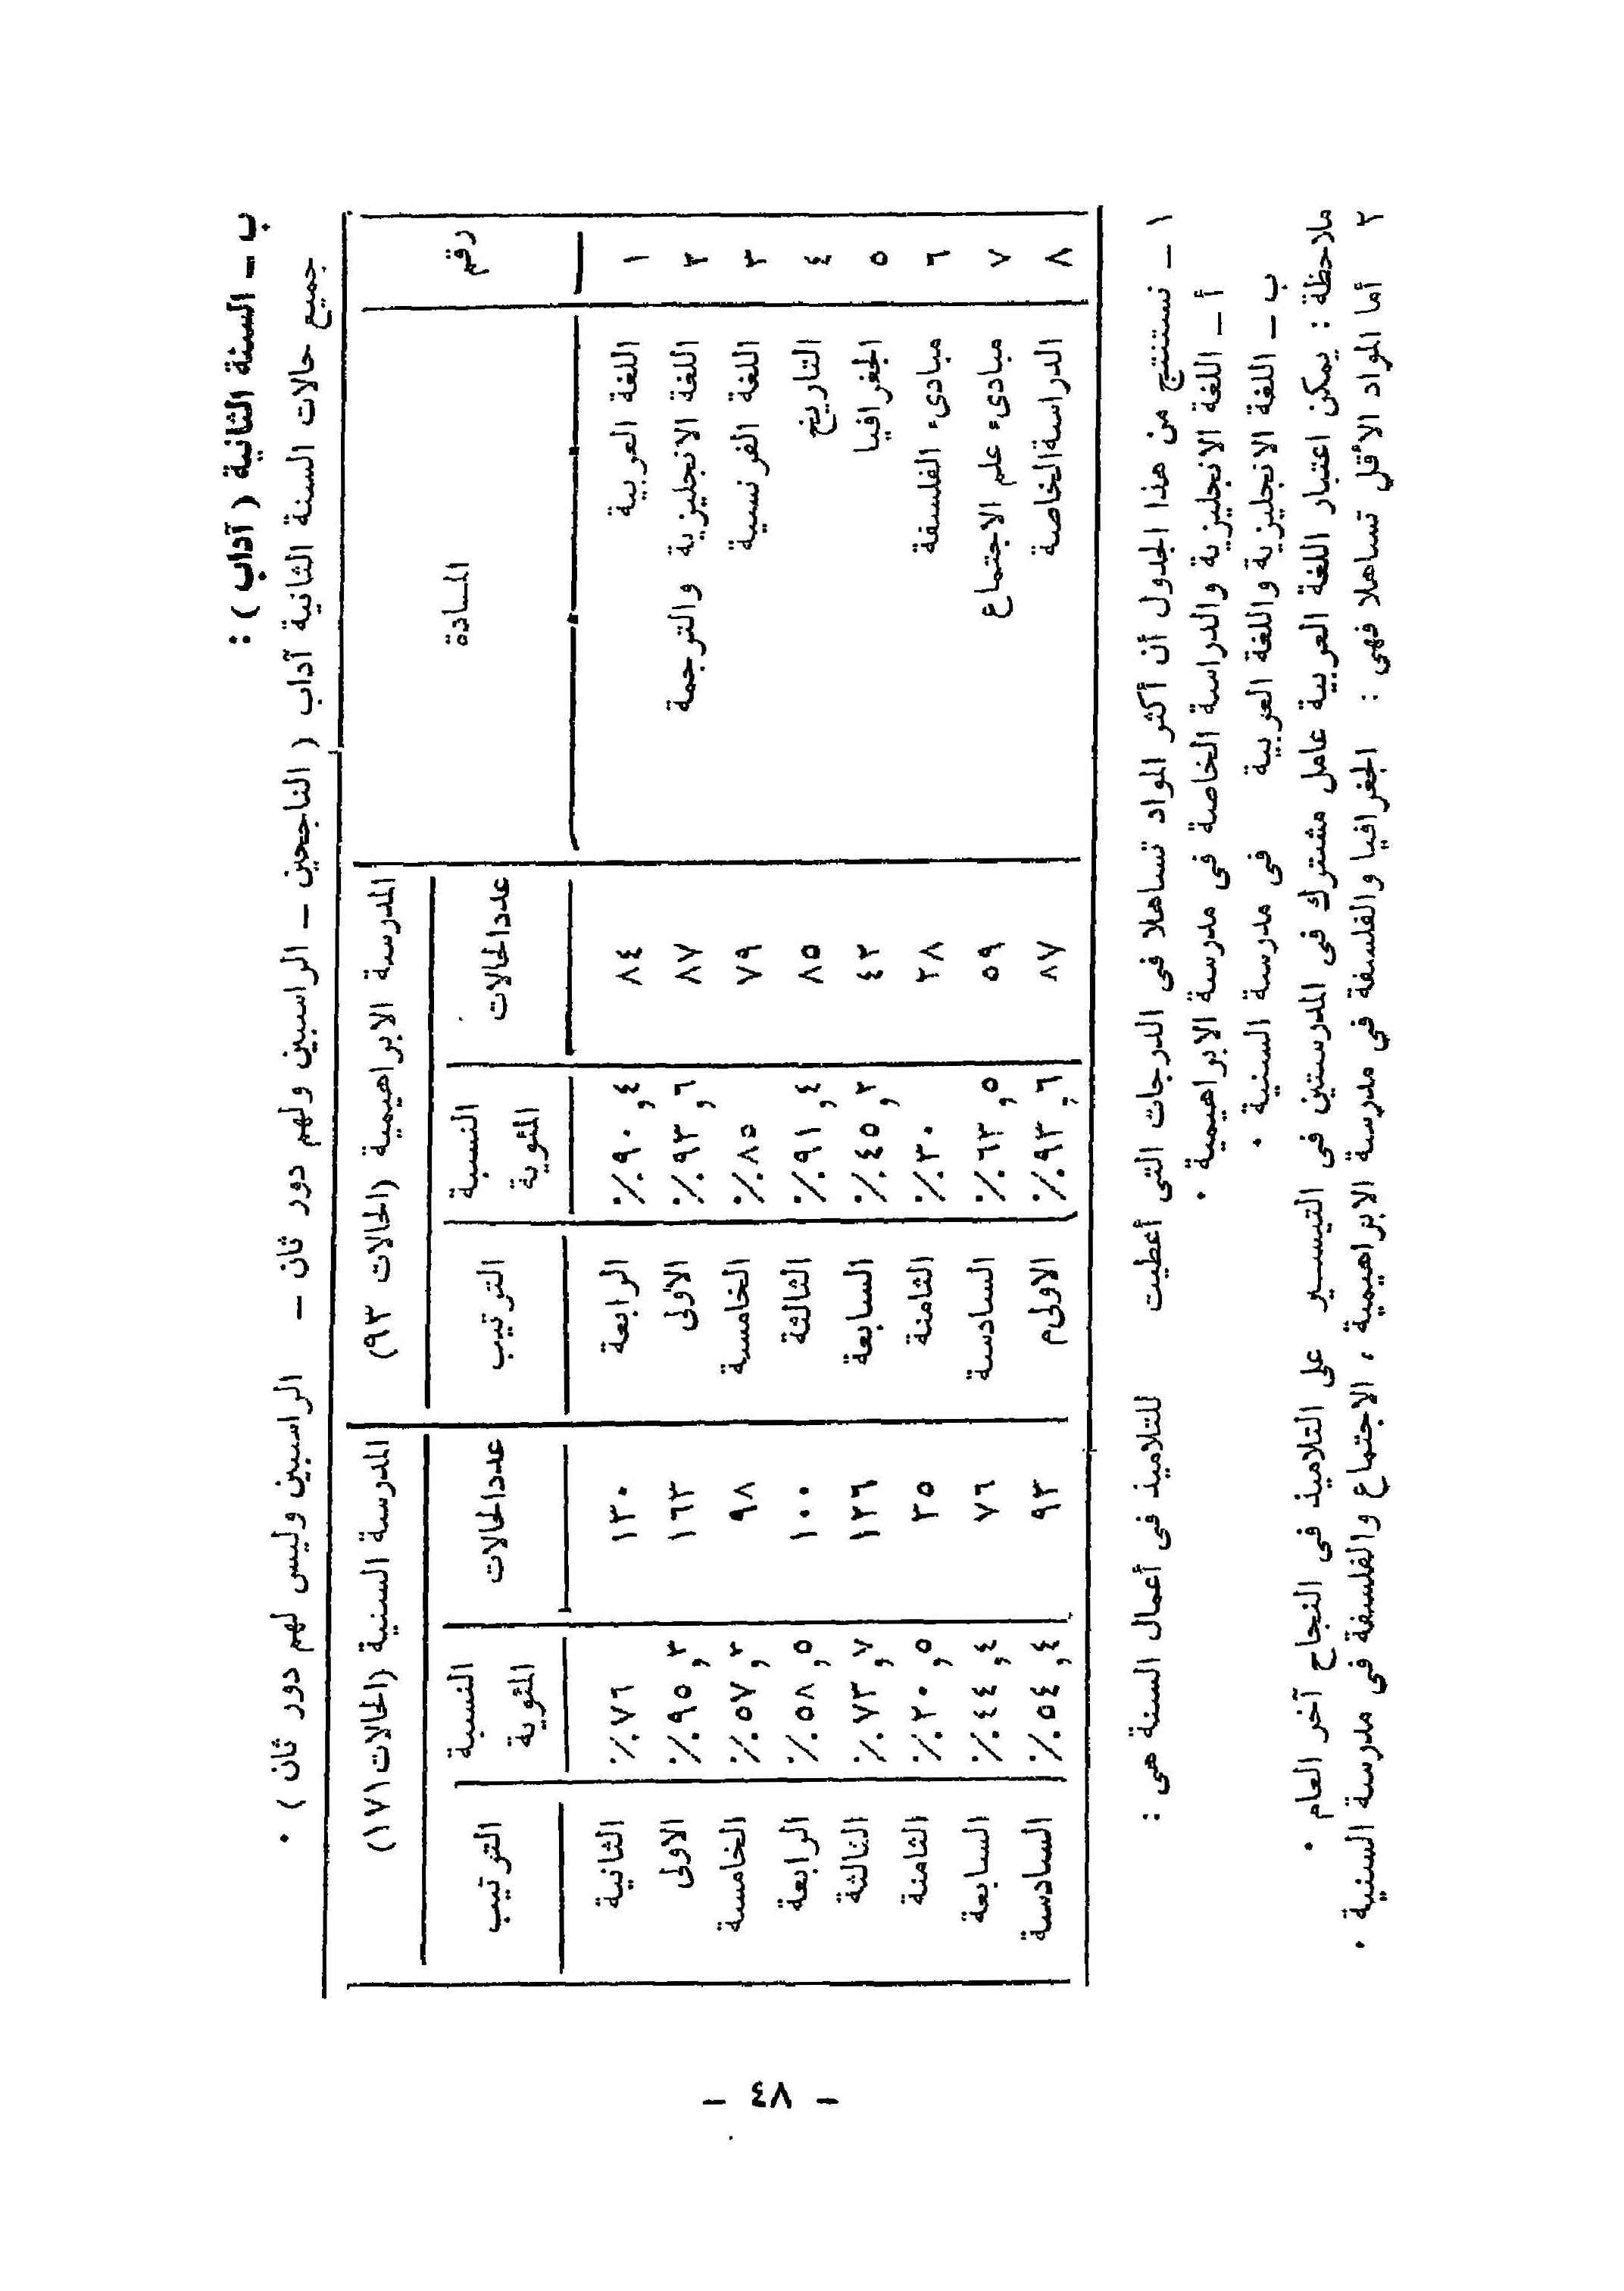 ب – السنة الثانية ( آداب ) :
جميع حالات السنة الثانية آداب ( الناجحين – الراسبين ولهم دور ثان – الراسبين وليس لهم دور ثان ) .
رقم المادة المدرسة الابراهيمية (الحالات ٩٣) المدرسة السنية (الحالات ١٧١)
عددالحالات النسبة المئوية الترتيب عددالحالات النسبة المئوية الترتيب
١ اللغة العربية ٨٤ ٩٠,٤٪ الرابعة ١٣٠ ٧٦٪ الثانية
٢ اللغة الانجليزية والترجمة ٨٧ ٩٣,٦٪ الأولى ١٦٣ ٩٥,٣٪ الاولى
٣ اللغة الفرنسية ٧٩ ٨٥٪ الخامسة ٩٨ ٥٧,٣٪ الخامسة
٤ التاريخ ٨٥ ٩١,٤٪ الثالثة ١٠٠ ٥٨,٥٪ الرابعة
٥ الجغرافيا ٤٢ ٤٥,٢٪ السابعة ١٢٦ ٧٣,٧٪ الثالثة
٦ مبادىء الفلسفة ٢٨ ٣٠٪ الثامنة ٣٥ ٢٠,٥٪ الثامنة
٧ مبادىء علم الاجتماع ٥٩ ٦٣,٥٪ السادسة ٧٦ ٤٤,٤٪ السابعة
٨ الدراسةالخاصة ٨٧ ٩٣,٦٪ الاولىم ٩٣ ٥٤,٤٪ السادسة
١ – نستنتج من هذا الجدول أن أكثر المواد تساهلا فى الدرجات التى أعطيت للتلاميذ فى أعمال السنة هى :
أ – اللغة الانجليزية والدراسة الخاصة فى مدرسة الابراهيمية .
ب – اللغة الانجليزية واللغة العربية فى مدرسة السنية .
ملاحظة : يمكن اعتبار اللغة العربية عامل مشترك فى المدرستين فى التيسير على التلاميذ فى النجاح آخر العام .
٢ أما المواد الأقل تساهلا فهي : الجغرافيا والفلسفة في مدرسة الابراهيمية ، الاجتماع والفلسفة في مدرسة السنية .
– ٤٨ –